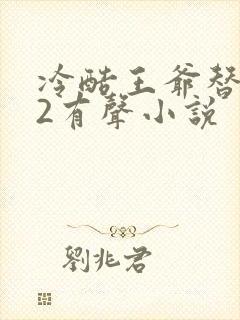 冷酷王爺替
2有聲小說
劉兆君